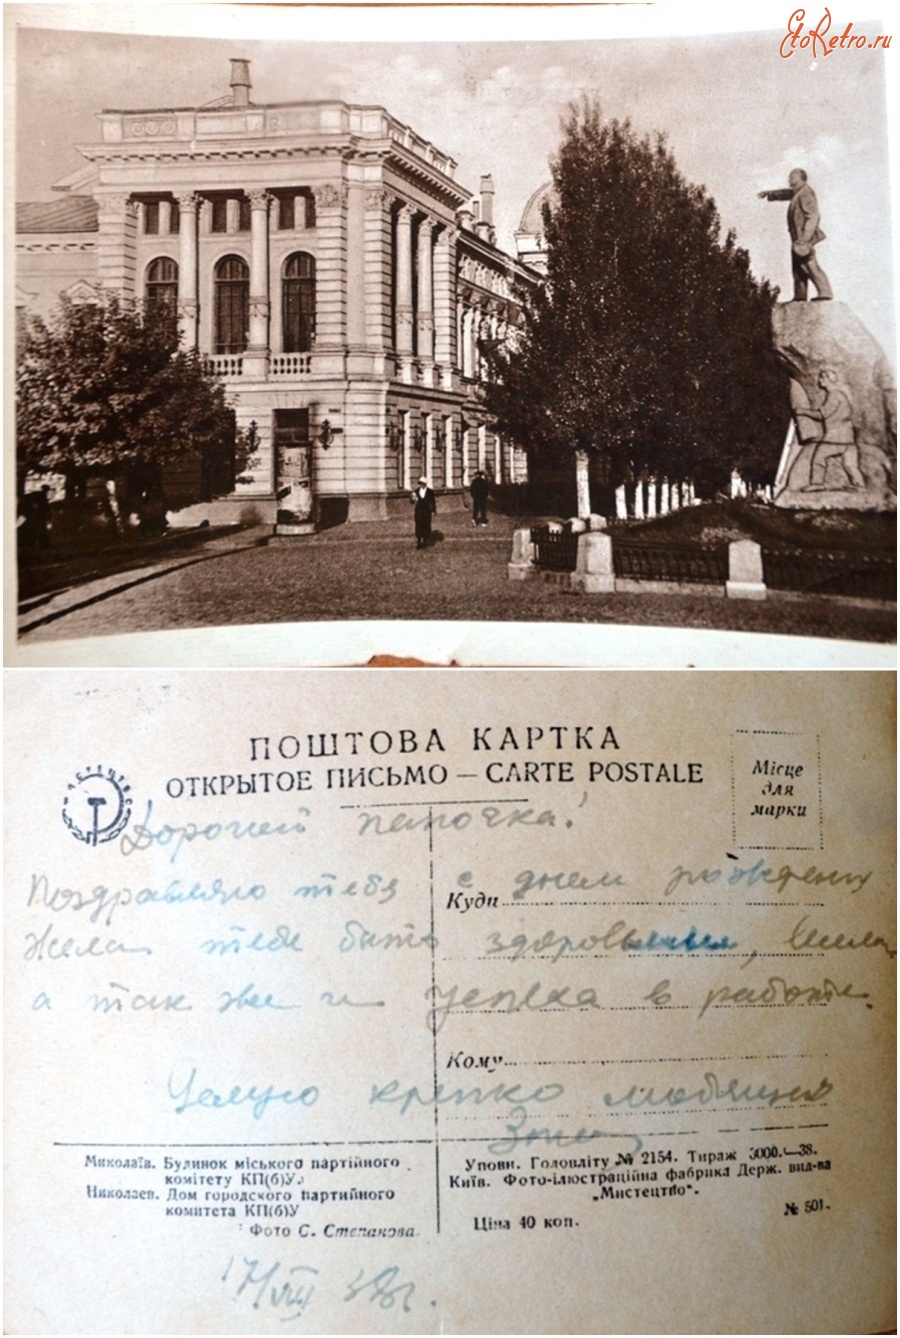 EtoRetro.ru
ПОШТОВА КАРТКА
ОТКРЫТОЕ ПИСЬМО — CARTE POSTALE
Місце
для
марки
Дорогой папочка!
Поздравляю тебя с днем рождения
Желаю тебе быть здоровым,
Куди
а так же и успеха в работе.
Кому
Целую крепко любящий
Миколаїв. Будинок міського партійного
комітету КП(б)У.
Николаев. Дом городского партийного
комитета КП(б)У
Фото С. Степанова.
Уповн. Головліту № 2154. Тираж 5000.—38.
Київ. Фото-ілюстраційна фабрика Держ. вид-ва
„Мистецтво".
Ціна 40 коп.
№ 501.
17/VIII 38г.